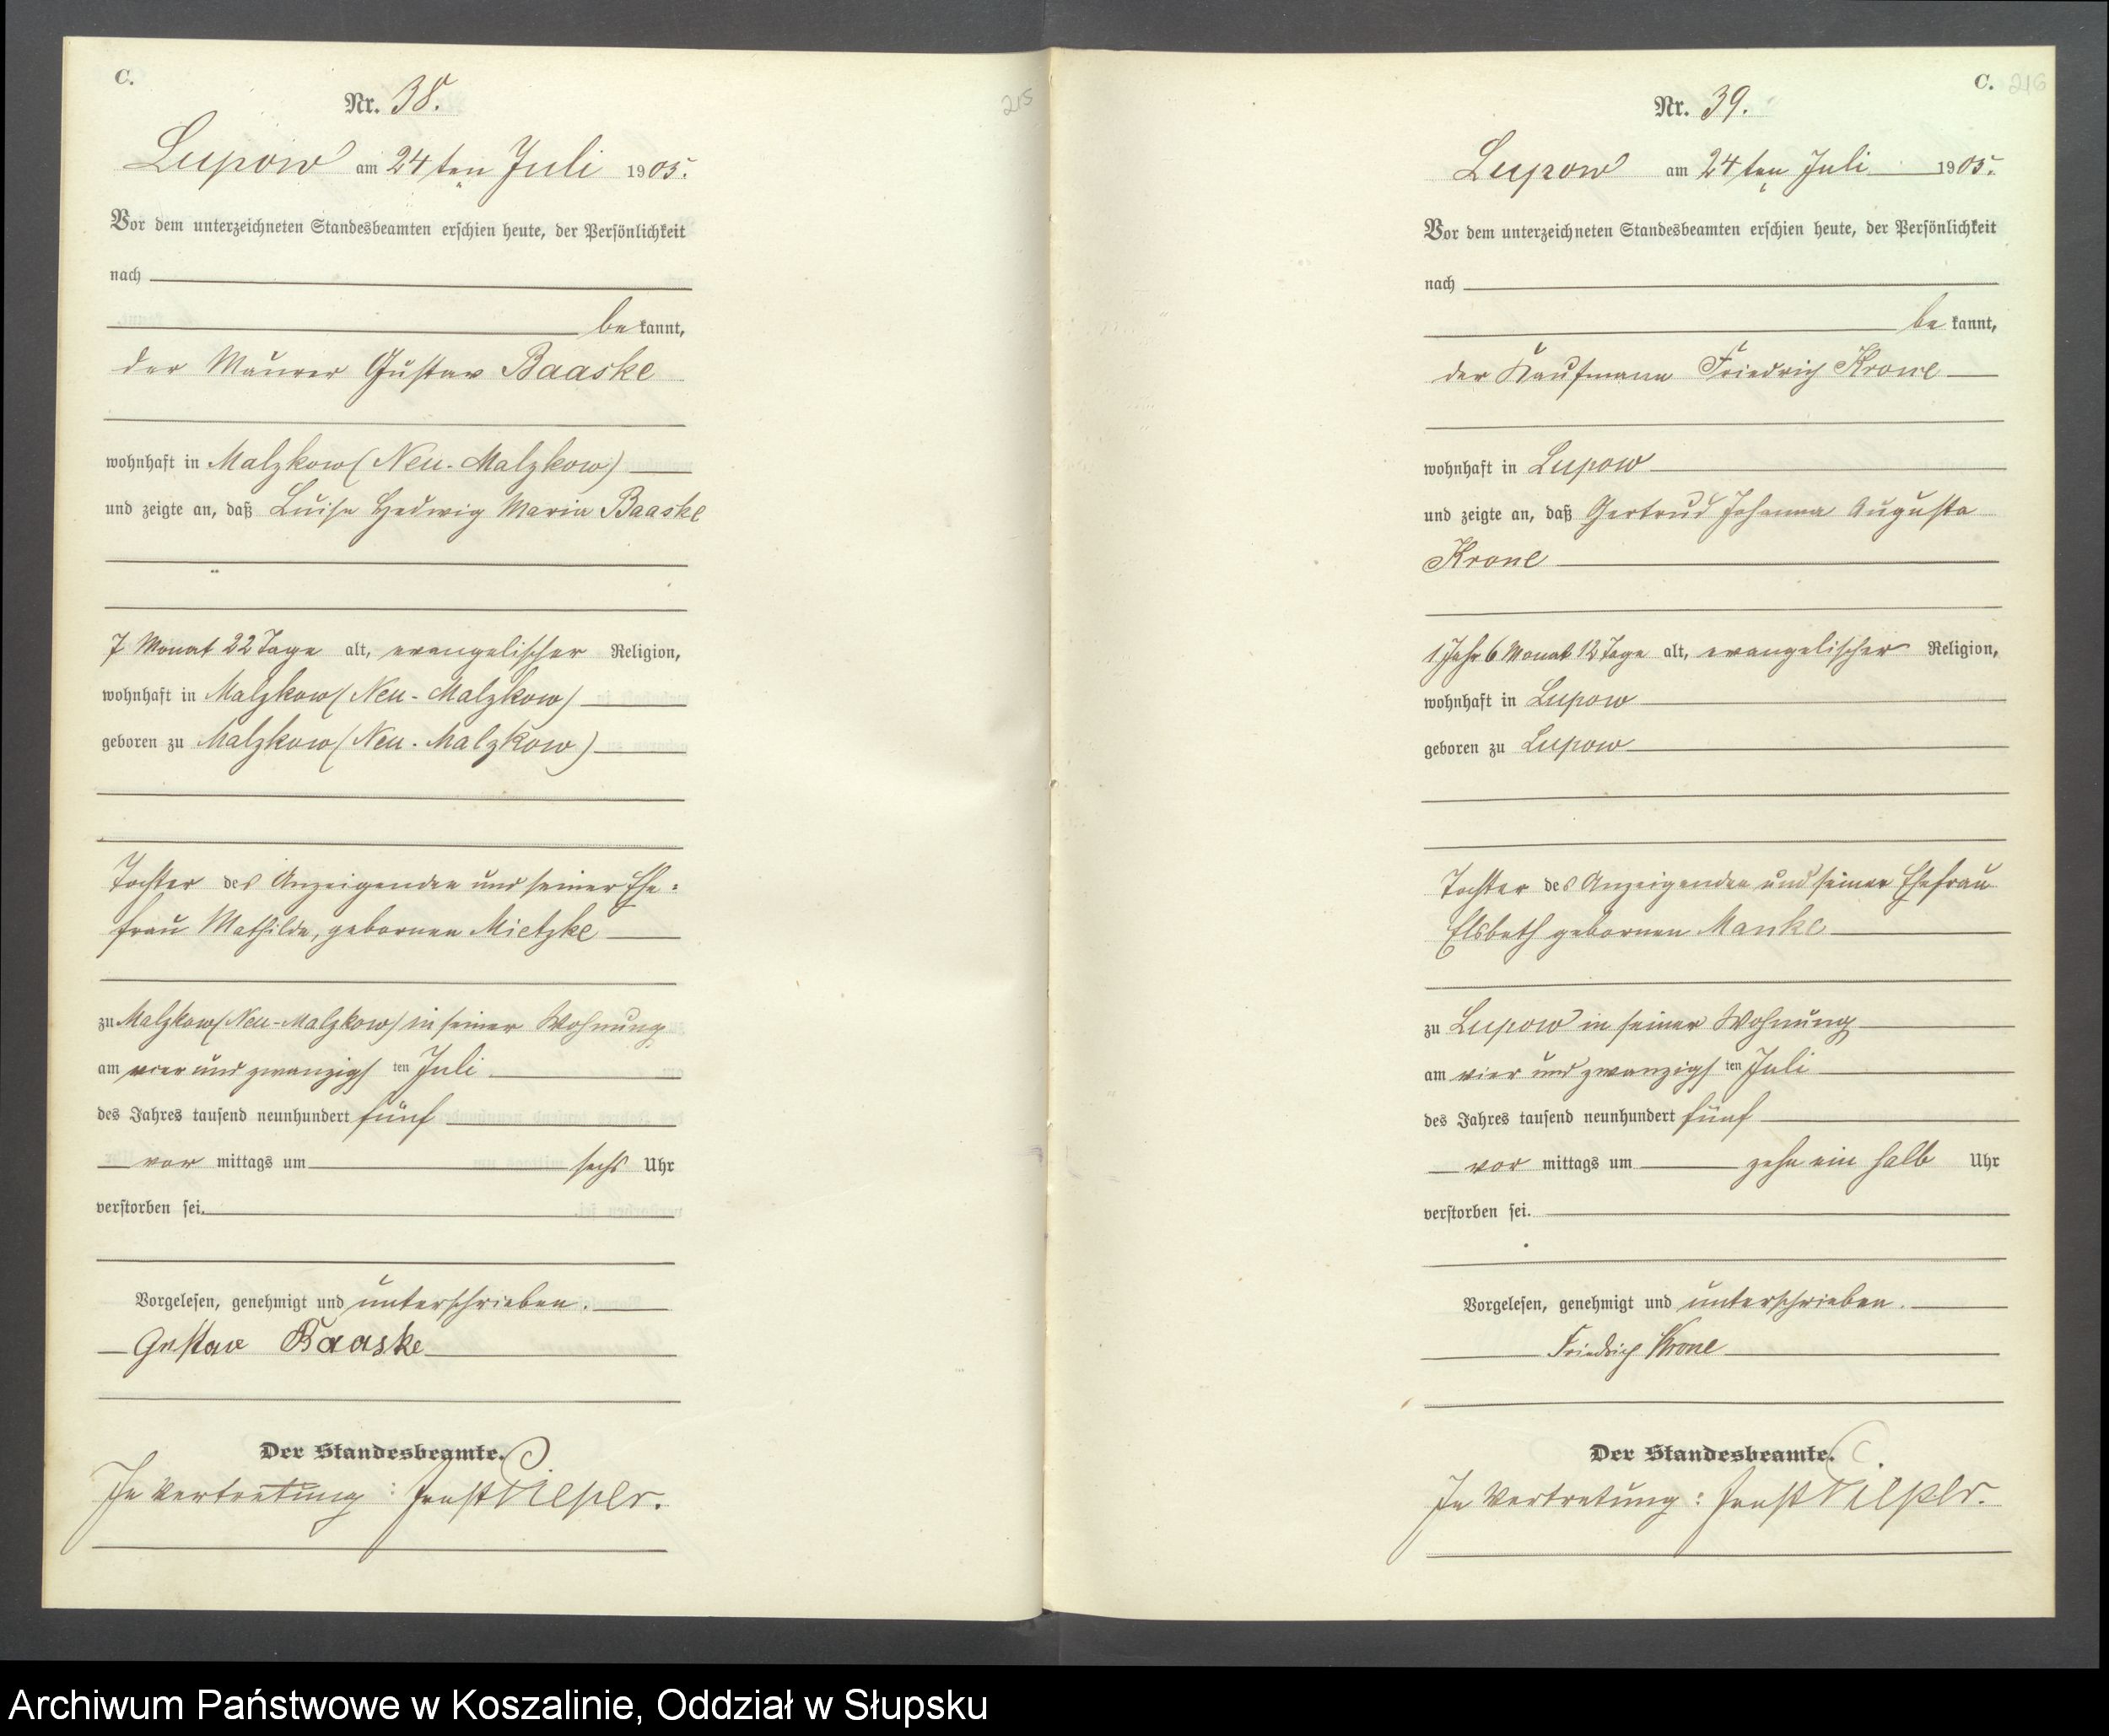 C.
Nr. 38.
215
Lupow am 24ten Juli 1905.
Vor dem unterzeichneten Standesbeamten erschien heute, der Persönlichkeit
nach
be kannt,
der Maurer Gustav Baaske
wohnhaft in Malzkow (Neu-Malzkow)
und zeigte an, daß Luise Hedwig Maria Baaske
7 Monat 22 Tage alt, evangelischer Religion,
wohnhaft in Malzkow (Neu-Malzkow)
geboren zu Malzkow (Neu-Malzkow)
Tochter des Anzeigenden und seiner Ehe=
frau Mathilde, geborenen Mietzke
zu Malzkow (Neu-Malzkow) in seiner Wohnung
am vier und zwanzigs ten Juli
des Jahres tausend neunhundert fünf
vor mittags um sechs Uhr
verstorben sei.
Vorgelesen, genehmigt und unterschrieben.
Gustav Baaske
Der Standesbeamte.
In Vertretung: Ernst Pieper.
C. 216
Nr. 39.
Lupow am 24ten Juli 1905.
Vor dem unterzeichneten Standesbeamten erschien heute, der Persönlichkeit
nach
be kannt,
der Kaufmann Friedrich Krone
wohnhaft in Lupow
und zeigte an, daß Gertrud Johanna Augusta
Krone
1 Jahr 6 Monat 12 Tage alt, evangelischer Religion,
wohnhaft in Lupow
geboren zu Lupow
Tochter des Anzeigenden und seiner Ehefrau
Elsbeth geborenen Manke
zu Lupow in seiner Wohnung
am vier und zwanzigs ten Juli
des Jahres tausend neunhundert fünf
vor mittags um zehn ein halb Uhr
verstorben sei.
Vorgelesen, genehmigt und unterschrieben.
Friedrich Krone
Der Standesbeamte.
In Vertretung: Ernst Pieper.
Archiwum Państwowe w Koszalinie, Oddział w Słupsku